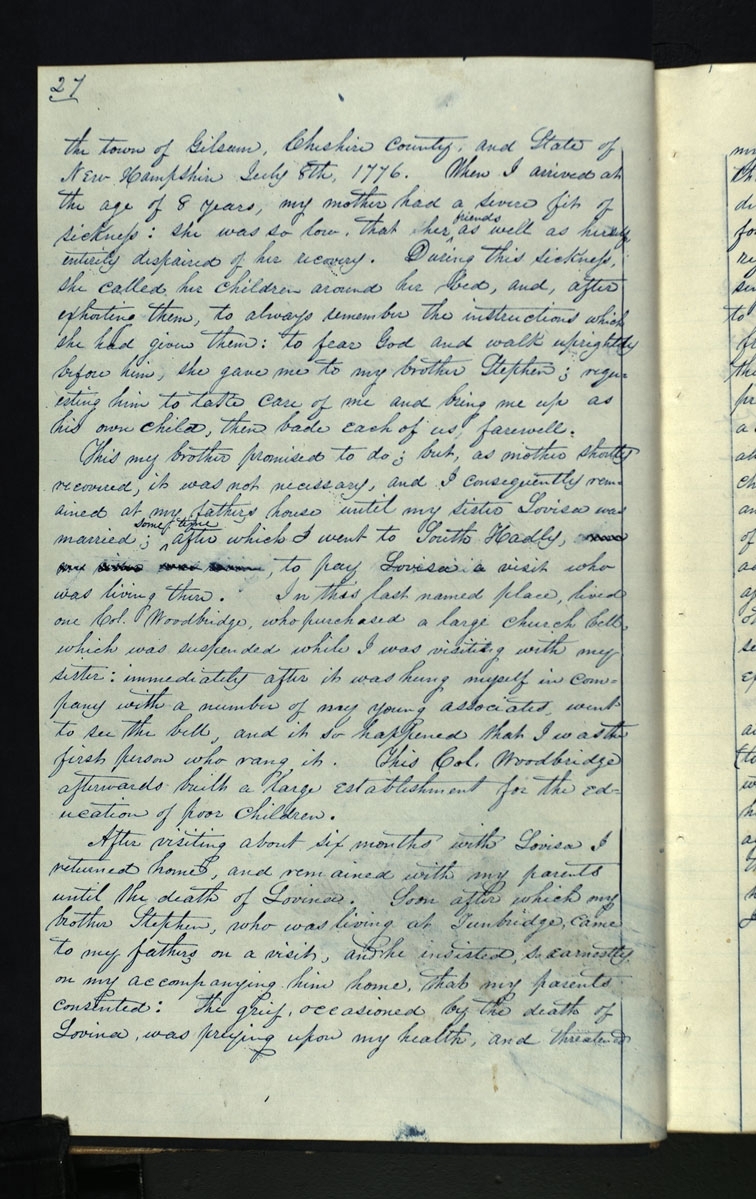 27
the town of Gilsum, Cheshire county, and State of
New Hampshire July 8th, 1776. When I arrived at
the age of 8 years, my mother had a severe fit of
sickness: she was so low, that her friends as well as herself
entirely dispaired of her recovery. During this sickness,
she called her children around her bed, and, after
exhorting them, to always remember the instructions which
she had given them: to fear God and walk uprightly
before him, she gave me to my brother Stephen; requ=
esting him to take care of me and bring me up as
his own child, then bade each of us farewell.
This my brother promised to do; but, as mother shortly
recovered, it was not necessary, and I consequently rem=
ained at my fathers house until my sister Lovisa was
married; some time after which I went to South Hadly,
to pay Lovisa a visit who
was living there. In this last named place, lived
one Col. Woodbridge, who purchased a large church bell
which was suspended while I was visiting with my
sister: immediately after it was hung myself in com=
pany with a number of my young associates, went
to see the bell, and it so happened that I was the
first person who rang it. This Col. Woodbridge
afterwards built a large establishment for the ed=
ucation of poor children.
After visiting about six months with Lovisa I
returned home, and remained with my parents
until the death of Lovina. Soon after which my
brother Stephen, who was living at Tunbridge, came
to my fathers on a visit, and he insisted, so earnestly
on my accompanying him home, that my parents
consented: the grief, occasioned by the death of
Lovina, was preying upon my health, and threatened